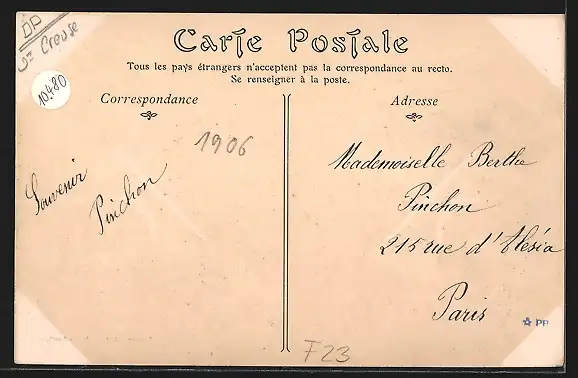 DP
Creuse
10.480
Carte Postale
Tous les pays étrangers n'acceptent pas la correspondance au recto.
Se renseigner à la poste.
Correspondance
Adresse
1906
Souvenir
Pinchon
Mademoiselle Berthe
Pinchon
215 rue d'Alesia
Paris
PP
F23